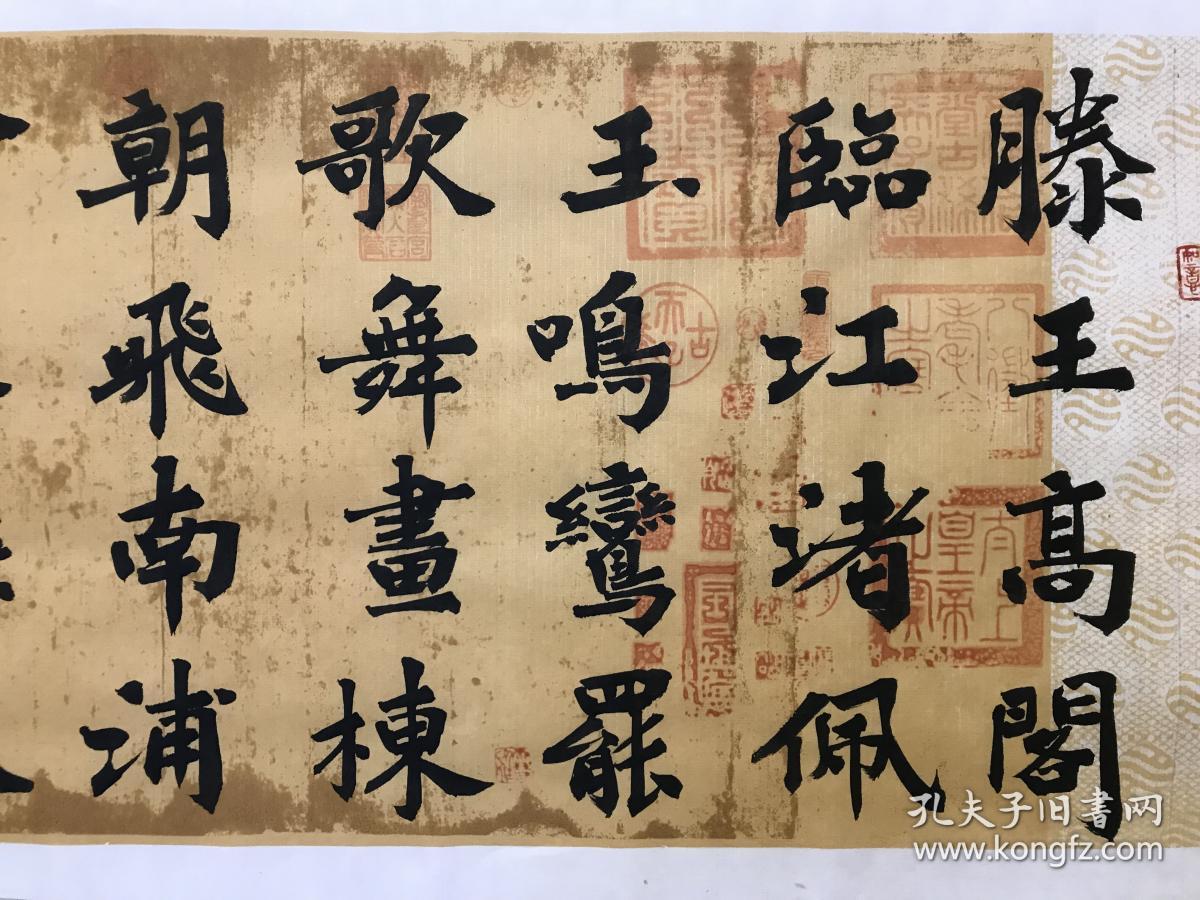 滕王高閣
臨江渚佩
玉鳴鸞罷
歌舞畫棟
朝飛南浦
孔夫子旧书网
www.kongfz.com